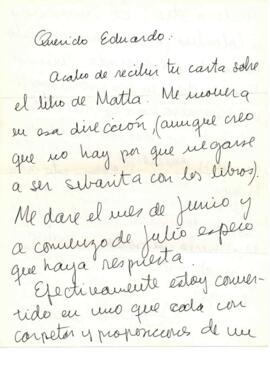 Querido Eduardo:
Acabo de recibir tu carta sobre
el libro de Matla. Me movera
en esa dirección, (aunque creo
que no hay por que negarse
a ser sibarita con los libros).
Me dare el mes de Junio y
a comienzo de Julio espero
que haya respuesta.
Efectivamente estoy conver-
tido en uno que anda con
carpetas y proposiciones de un